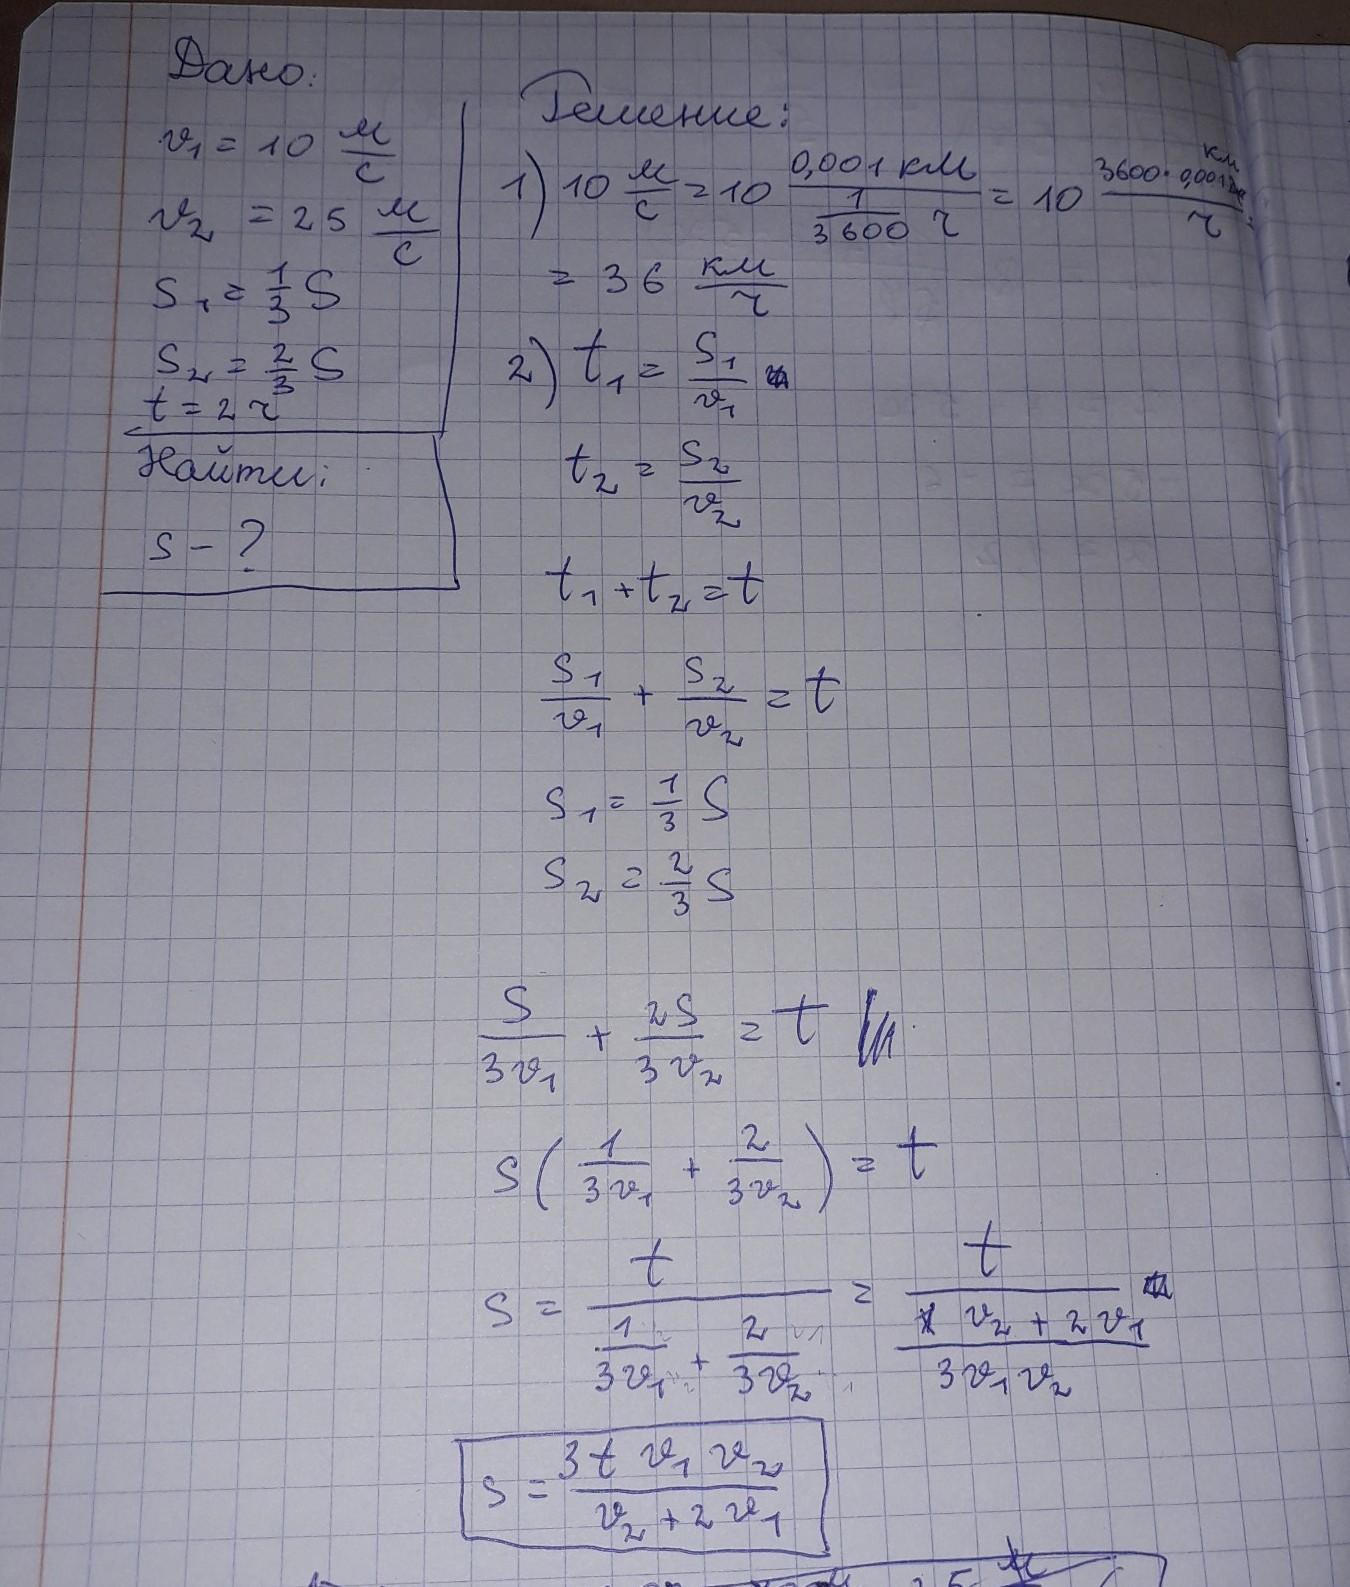 Дано:
v₁ = 10 м/с
v₂ = 25 м/с
S₁ = 1/3 S
S₂ = 2/3 S
t = 2 ч
Найти:
s - ?
Решение:
1) 10 м/с = 10 0,001 км / (1/3600 ч) = 10 3600 · 0,001 км / ч =
= 36 км/ч
2) t₁ = S₁/v₁
t₂ = S₂/v₂
t₁ + t₂ = t
S₁/v₁ + S₂/v₂ = t
S₁ = 1/3 S
S₂ = 2/3 S
S/3v₁ + 2S/3v₂ = t
S(1/3v₁ + 2/3v₂) = t
S = t / (1/3v₁ + 2/3v₂) = t / ((v₂ + 2v₁)/3v₁v₂)
S = 3t v₁ v₂ / (v₂ + 2v₁)